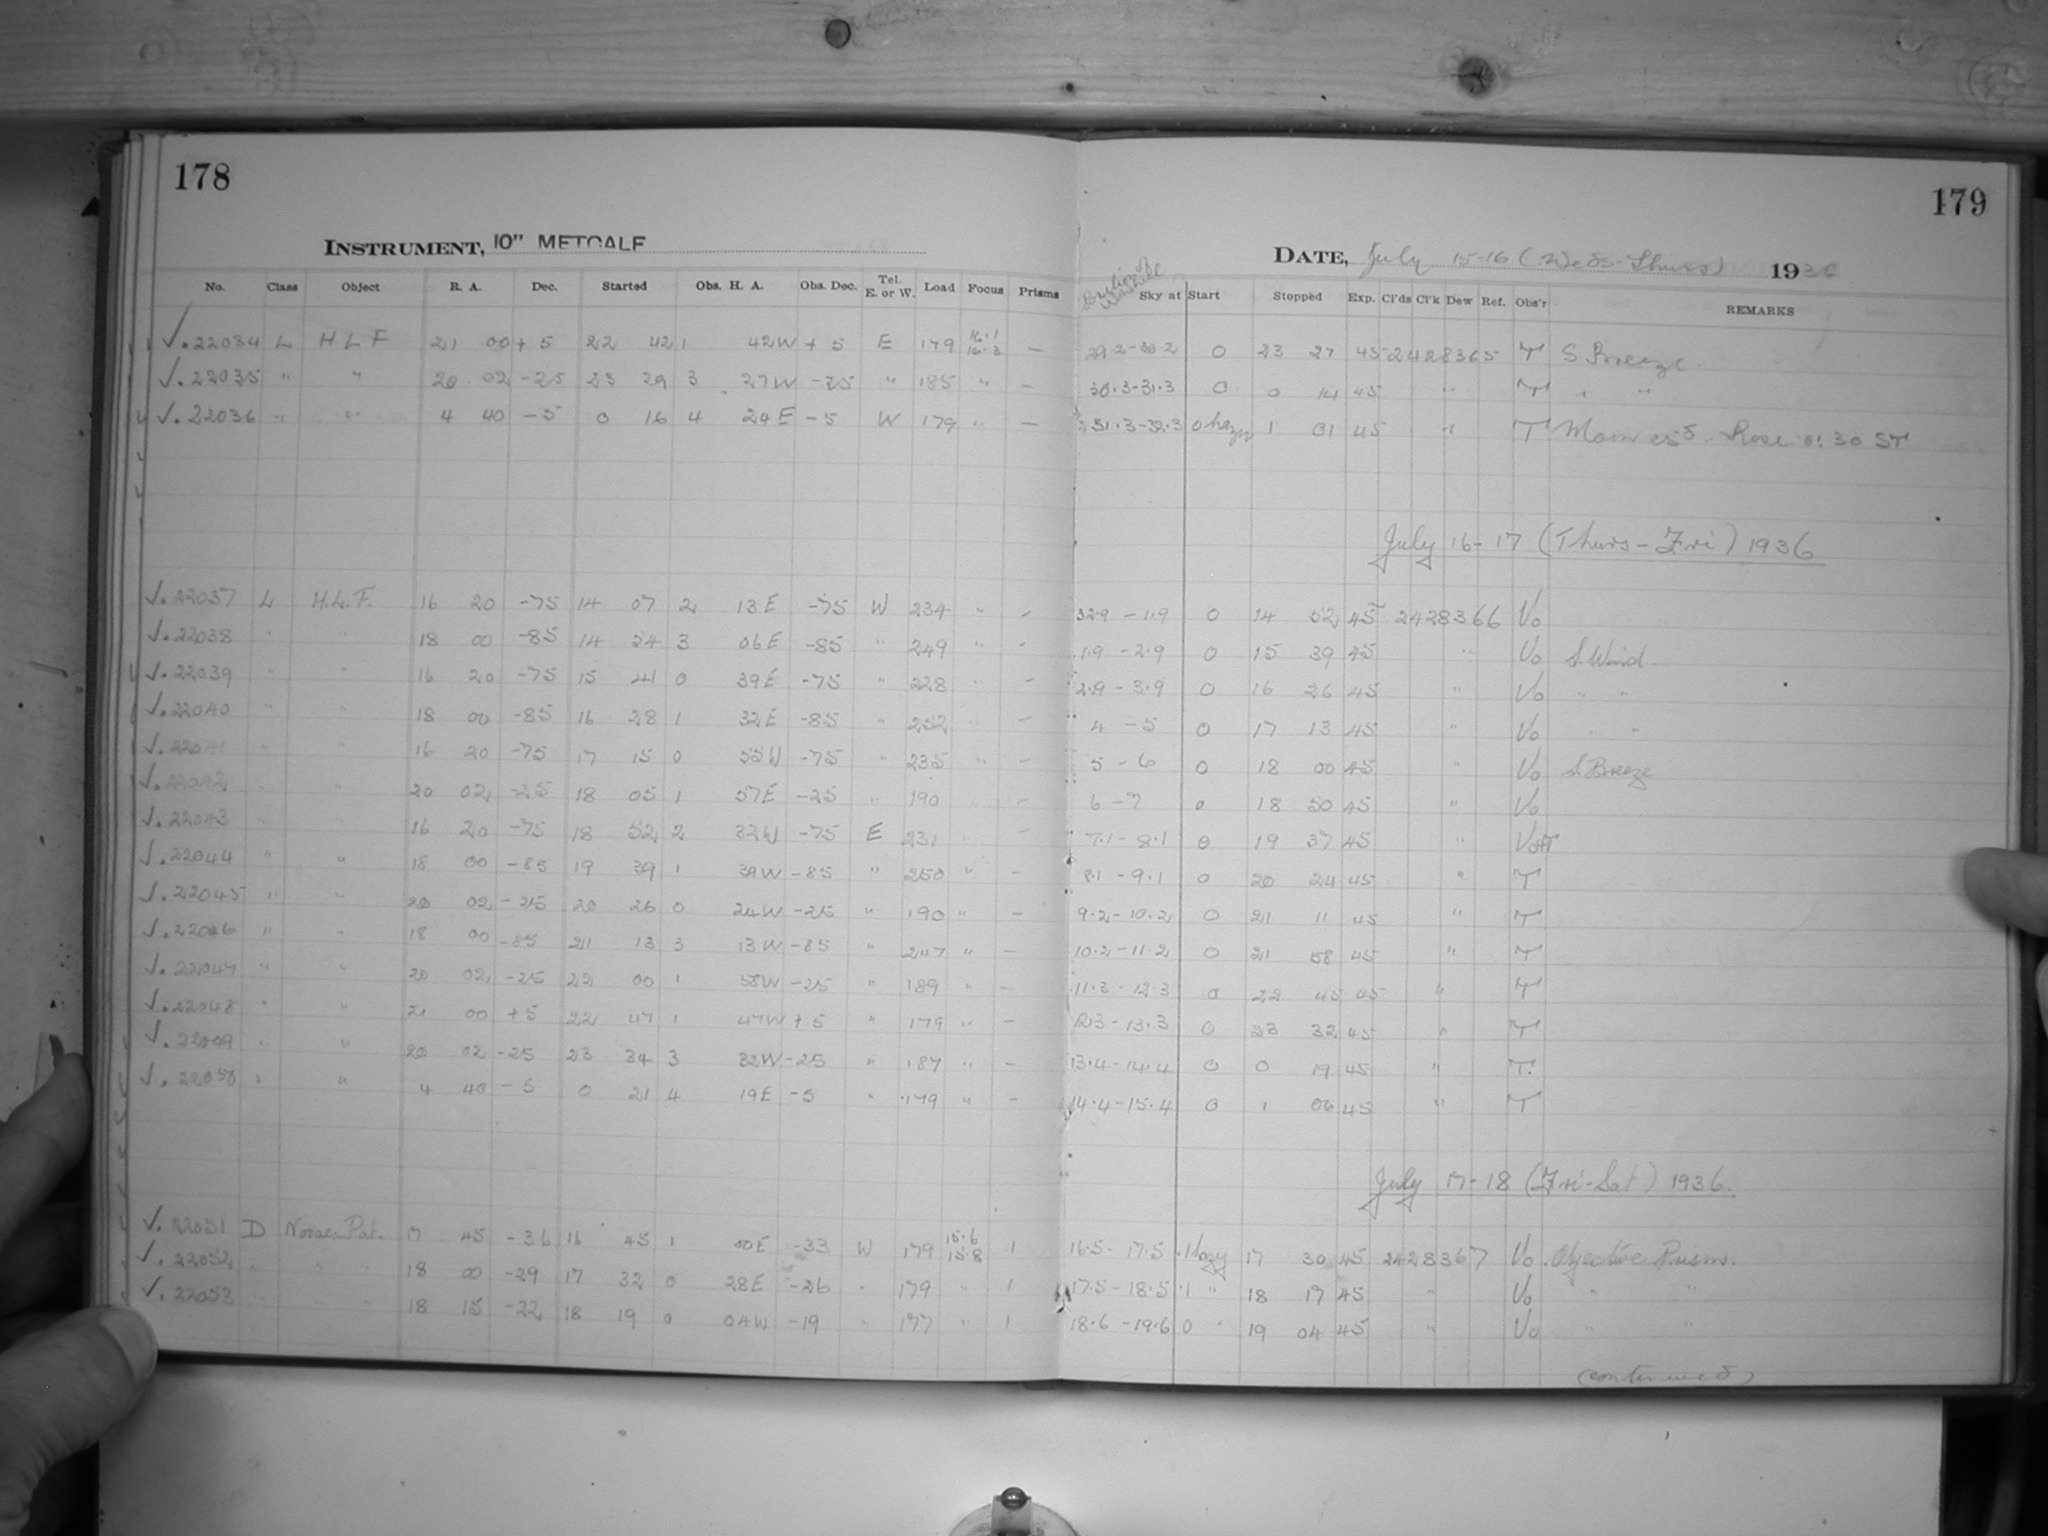 178
179
INSTRUMENT, 10" METCALF
DATE, July 15-16 (Weds-Thurs) 1936
No. Class Object R. A. Dec. Started Obs. H. A. Obs. Dec. Tel. E. or W. Load Focus Prisms Sky at Start Stopped Exp. Cl'ds Cl'k Dew Ref. Obs'r REMARKS
√.22034 L H L F 21 00 +5 22 42 1 42W +5 E 179 16.1 16.3 — 29.2-30.2 0 23 27 45 2428365 T S. Breeze
√.22035 " " 20 02 -25 23 29 3 27W -25 " 185 " — 30.3-31.3 0 0 14 45 " T " "
√.22036 " " 4 40 -5 0 16 4 24E -5 W 179 " — 31.3-32.3 0 hazy 1 01 45 " T Moon Rose 0:30 ST
July 16-17 (Thurs-Fri) 1936
√.22037 L H.L.F. 16 20 -75 14 07 2 13E -75 W 234 " — 32.9-1.9 0 14 52 45 2428366 Vo
√.22038 " " 18 00 -85 14 54 3 06E -85 " 249 " — 1.9-2.9 0 15 39 45 " Vo S. Wind.
√.22039 " " 16 20 -75 15 41 0 39E -75 " 228 " — 2.9-3.9 0 16 26 45 " Vo " "
√.22040 " " 18 00 -85 16 28 1 32E -85 " 252 " — 4-5 0 17 13 45 " Vo " "
√.22041 " " 16 20 -75 17 15 0 55W -75 " 235 " — 5-6 0 18 00 45 " Vo S. Breeze
√.22042 " " 20 02 -25 18 05 1 57E -25 " 190 " — 6-7 0 18 50 45 " Vo
√.22043 " " 16 20 -75 18 52 2 32W -75 E 231 " — 7.1-8.1 0 19 37 45 "
√.22044 " " 18 00 -85 19 39 1 39W -85 " 250 " — 8.1-9.1 0 20 24 45 " T
√.22045 " " 20 02 -25 20 26 0 24W -25 " 190 " — 9.2-10.2 0 21 11 45 " T
√.22046 " " 18 00 -85 21 13 3 13W -85 " 247 " — 10.2-11.2 0 21 58 45 " T
√.22047 " " 20 02 -25 22 00 1 58W -25 " 189 " — 11.3-12.3 0 22 45 45 " T
√.22048 " " 21 00 +5 22 47 1 47W +5 " 179 " — 12.3-13.3 0 23 32 45 " T
√.22049 " " 20 02 -25 23 34 3 32W -25 " 187 " — 13.4-14.4 0 0 19 45 " T.
√.22050 " " 4 40 -5 0 21 4 19E -5 " 179 " — 14.4-15.4 0 1 06 45 " T
July 17-18 (Fri-Sat) 1936.
√.22051 D Novae Pat. 17 45 -36 16 45 1 00E -33 W 179 15.6 15.8 1 16.5-17.5 .1 hazy 17 30 45 2428367 Vo Objective Prism.
√.22052 " " " 18 00 -29 17 32 0 28E -26 " 179 " 1 17.5-18.5 .1 " 18 17 45 " Vo " "
√.22053 " " " 18 15 -22 18 19 0 04W -19 " 177 " 1 18.6-19.6 0 " 19 04 45 " Vo " "
(continued)